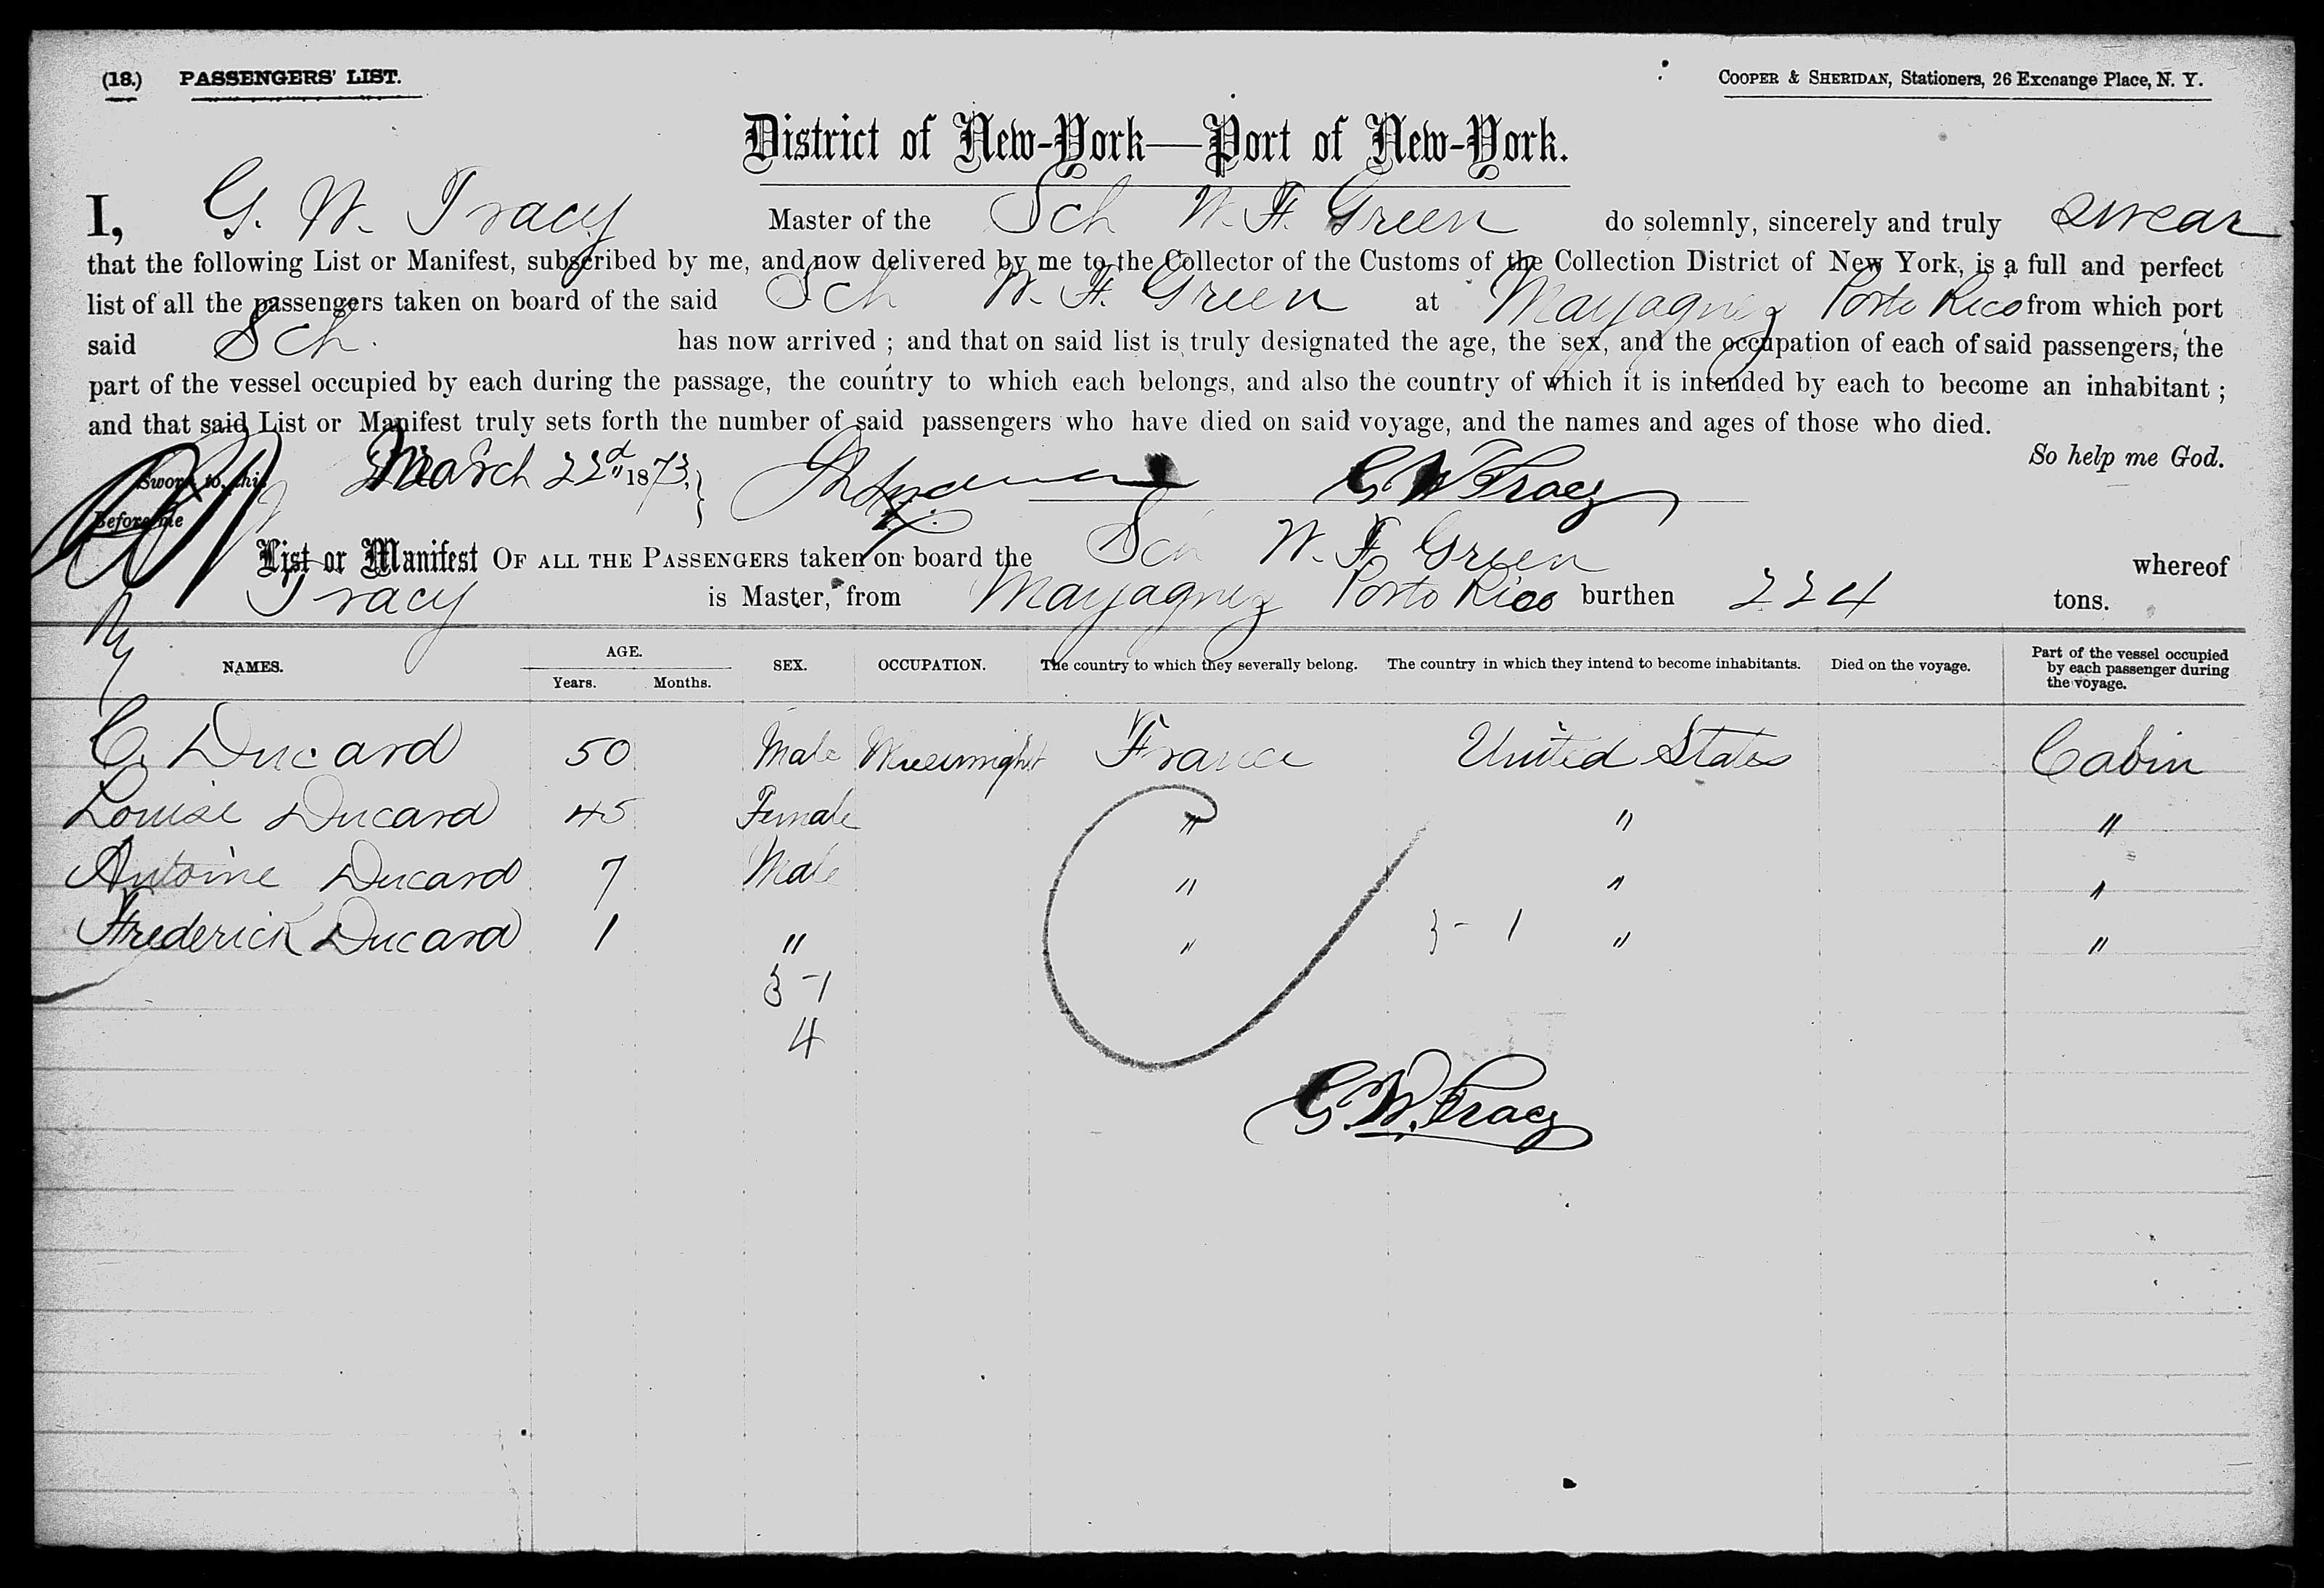 (18.) PASSENGERS' LIST.
COOPER & SHERIDAN, Stationers, 26 Exchange Place, N. Y.
District of New-York—Port of New-York.
I, G. W. Tracy Master of the Sch W. F. Green do solemnly, sincerely and truly swear
that the following List or Manifest, subscribed by me, and now delivered by me to the Collector of the Customs of the Collection District of New York, is a full and perfect
list of all the passengers taken on board of the said Sch W. F. Green at Mayaguez Porto Rico from which port
said Sch. has now arrived ; and that on said list is truly designated the age, the sex, and the occupation of each of said passengers, the
part of the vessel occupied by each during the passage, the country to which each belongs, and also the country of which it is intended by each to become an inhabitant ;
and that said List or Manifest truly sets forth the number of said passengers who have died on said voyage, and the names and ages of those who died.
So help me God.
Sworn to, this March 22d 1873. G W Tracy
Before me
List or Manifest OF ALL THE PASSENGERS taken on board the Sch W. F. Green whereof
Tracy is Master, from Mayaguez Porto Rico burthen 224 tons.
NAMES. AGE. Years. Months. SEX. OCCUPATION. The country to which they severally belong. The country in which they intend to become inhabitants. Died on the voyage. Part of the vessel occupied by each passenger during the voyage.
C. Ducard 50 Male France United States Cabin
Louise Ducard 45 Female " " "
Antoine Ducard 7 Male " " "
Frederick Ducard 1 " " } - 1 " "
3 - 1
4
G. W. Tracy